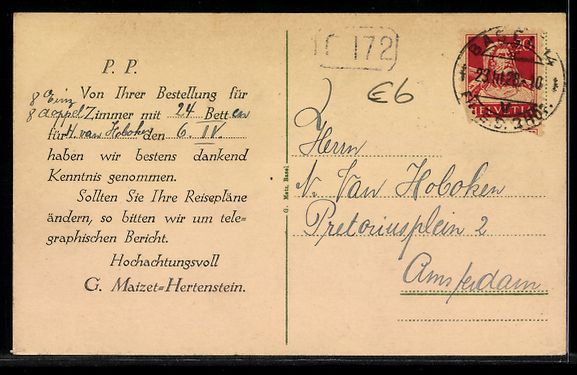 P. P.
8 Einz Von Ihrer Bestellung für
8 doppel Zimmer mit 24 Betten
für H. van Hoboken den 6. IV.
haben wir bestens dankend
Kenntnis genommen.
Sollten Sie Ihre Reisepläne
ändern, so bitten wir um tele-
graphischen Bericht.
Hochachtungsvoll
G. Maizet-Hertenstein.
G. Metz, Basel
172
E6
BASEL
HELVETIA
Herrn
N. Van Hoboken
Pretoriusplein 2
Amsterdam